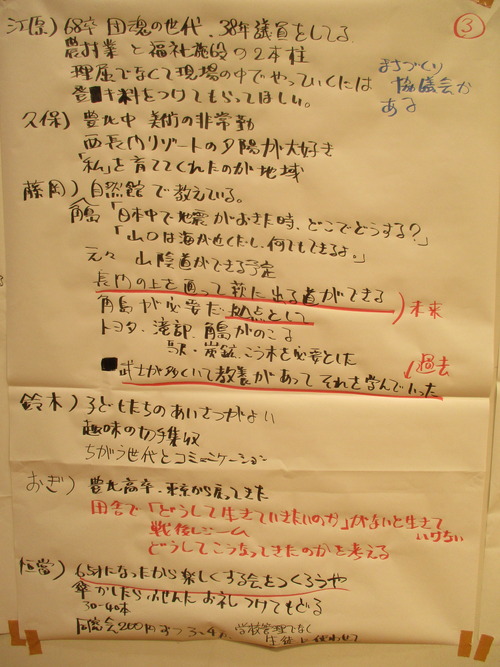 ③
江原) 68卒 団魂の世代、38年議員をしてる
農村業と福祉施設の2本柱
理屈でなくて現場の中でやっていくには
キ料をつけてもらってほしい。
まちづくり
協議会が
ある
久保) 豊北中 美術の非常勤
西長門リゾートの夕陽が大好き
「私」を育ててくれたのが地域
藤岡) 自然館で教えている。
角島「日本中で地震がおきた時、どこでどうする?」
「山口は海が近くだし、何でもできるよ。」
元々 山陰道ができる予定
長門の上を通って萩に出る道ができる
角島が必要だ 拠点として
未来
トヨタ、滝部、角島がのこる
炭鉱、こう木を必要とした
過去
武士が多くいて教養があって それを学んでいった
鈴木) 子どもたちのあいさつがよい
趣味の切手集収
ちがう世代とコミュニケーション
おぎ) 豊北高卒、東京から戻ってきた
田舎で「どうして生きていきたいのか」がないと生きて
いけない
戦後レジーム
どうしてこうなってきたのかを考える
恒富) 65才になったから楽しくする会をつくろうや
傘かしたらふせんにお礼つけてもどる
30-40本
同窓会200円ずつ 3~4
学校管理でなく